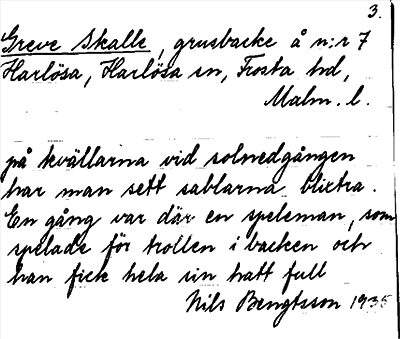 3.
Greve Skalle, grusbacke å n:r 7
Harlösa, Harlösa sn, Frosta hd,
Malm. l.
på kvällarna vid solnedgången
har man sett sablarna blixtra.
En gång var där en speleman, som
spelade för trollen i backen och
han fick hela sin hatt full
Nils Bengtsson 1935